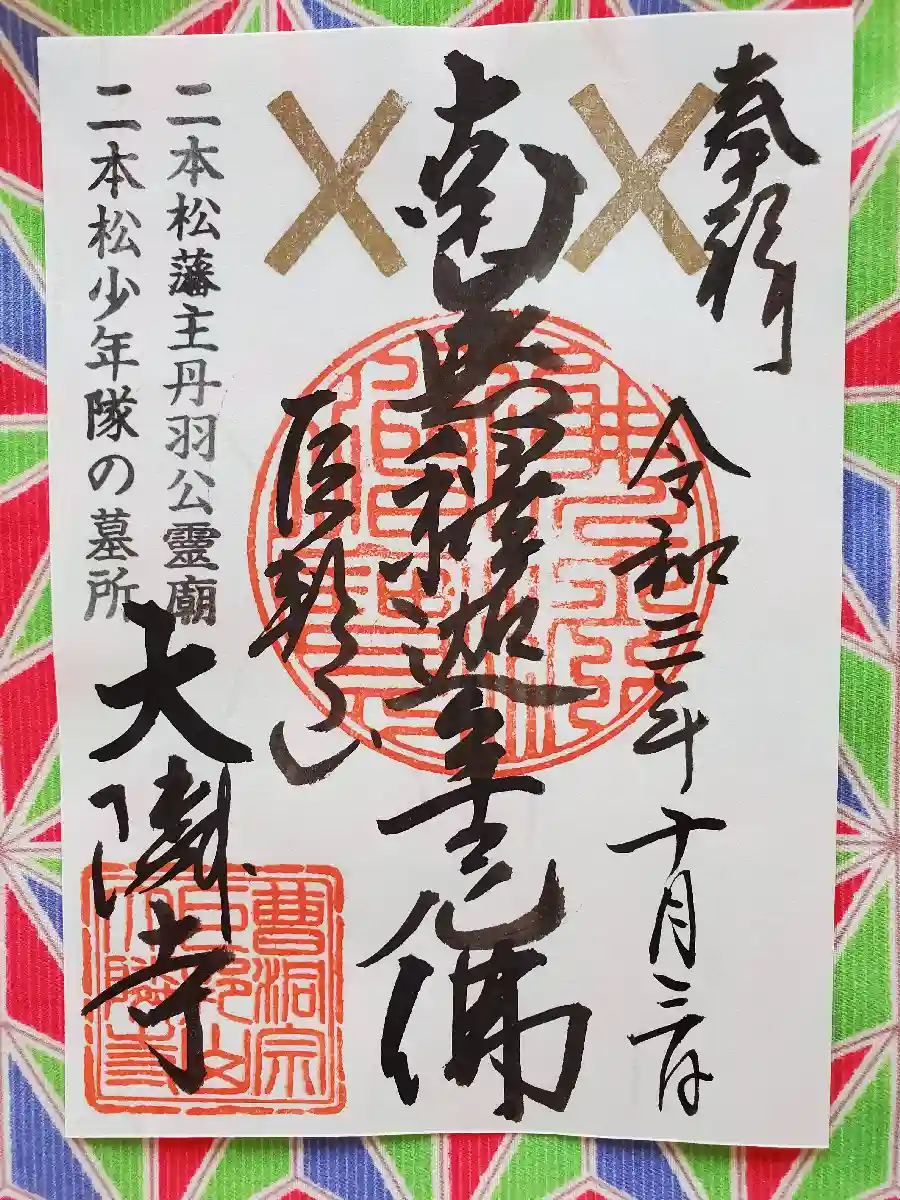 奉拝
令和三年十月三日
南無釋迦牟尼佛
巨邦山
二本松藩主丹羽公霊廟
二本松少年隊の墓所
大隣寺
曹洞宗
巨邦山
大隣寺